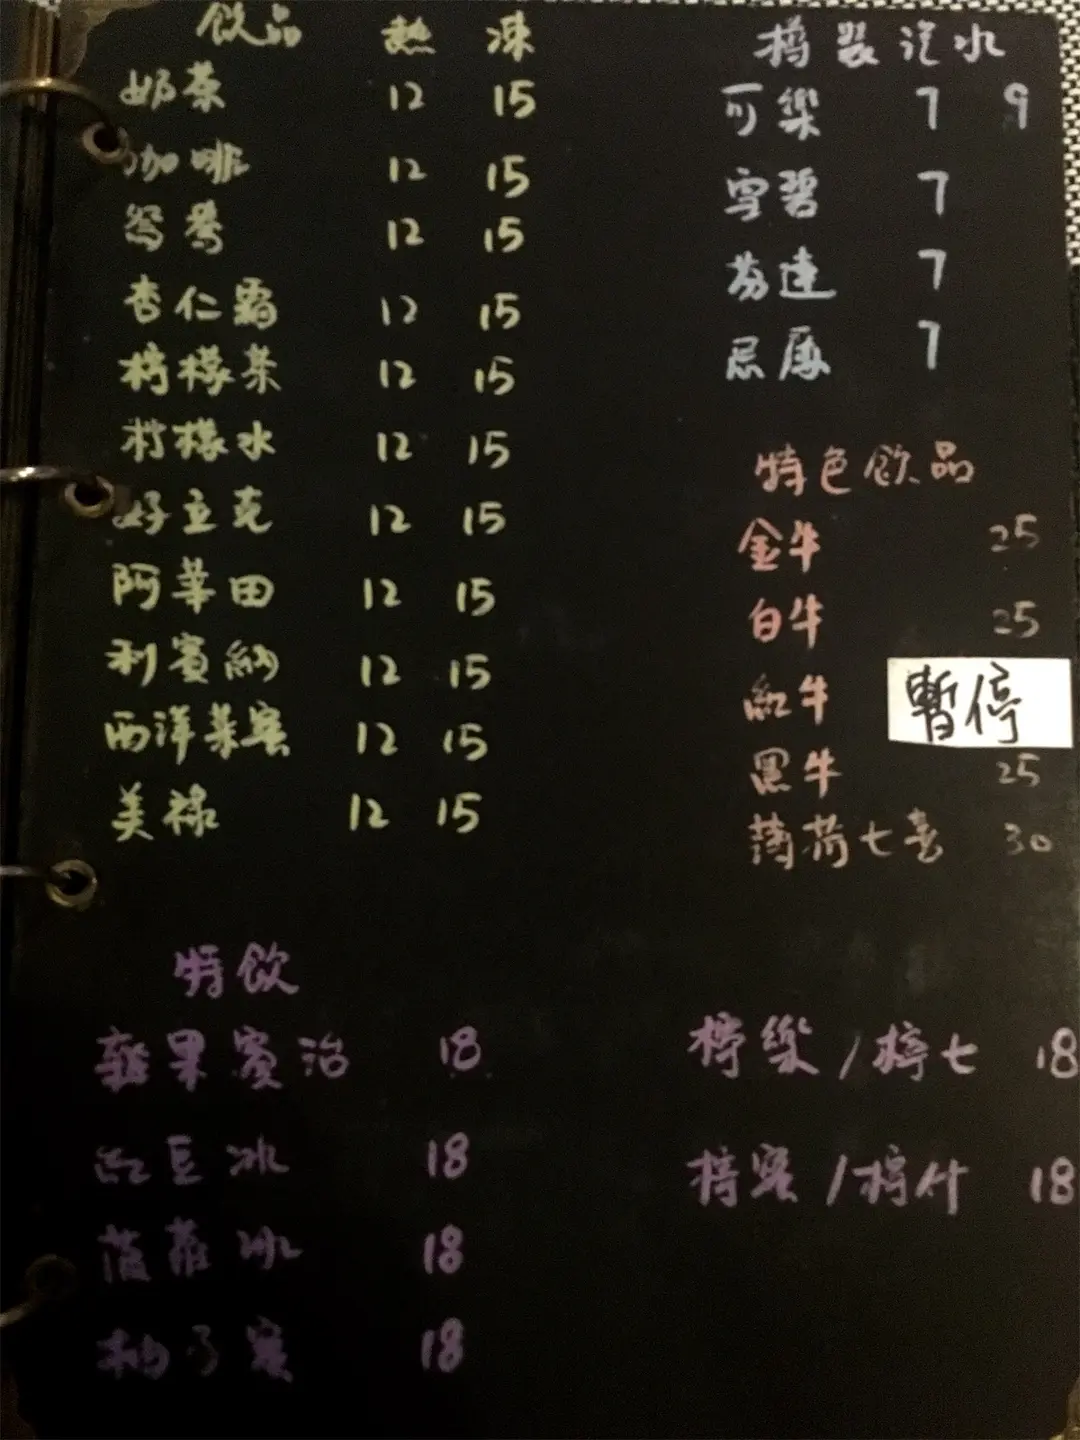 飲品 熱 凍
奶茶 12 15
咖啡 12 15
鴛鴦 12 15
杏仁霜 12 15
檸檬茶 12 15
檸檬水 12 15
好立克 12 15
阿華田 12 15
利賓納 12 15
西洋菜蜜 12 15
美祿 12 15
樽裝汽水
可樂 7 9
雪碧 7
芬達 7
忌廉 7
特色飲品
金牛 25
白牛 25
紅牛 暫停
黑牛 25
薄荷七喜 30
特飲
雜果賓治 18
紅豆冰 18
菠蘿冰 18
柚子蜜 18
檸樂/檸七 18
檸蜜/檸什 18